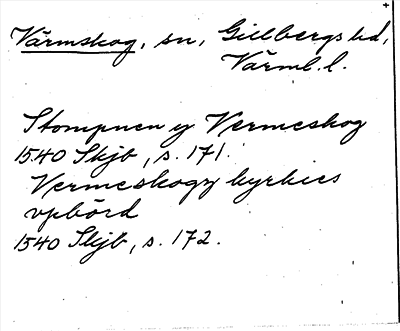 Värmskog, sn, Gillbergs hd,
Värml. l.
Stompnen y Vermeskog
1540 Skjb, s. 171.
Vermeskogz kyrkies
vpbörd
1540 Skjb, s. 172.